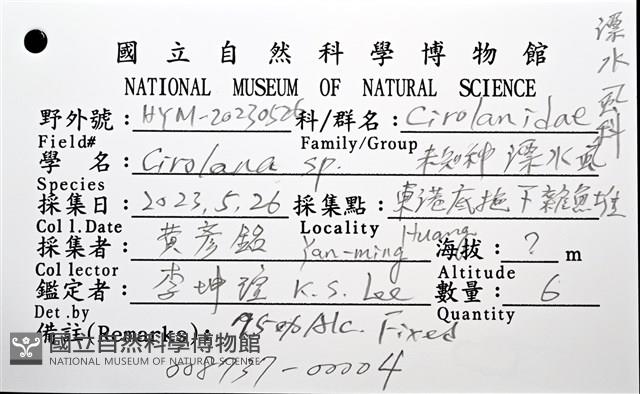 國立自然科學博物館
NATIONAL MUSEUM OF NATURAL SCIENCE
野外號：HYM-20230526 科/群名：Cirolanidae 漂水虱科
Field# Family/Group
學名：Cirolana sp. 未知种 漂水虱
Species
採集日：2023.5.26 採集點：東港底拖下雜魚堆
Coll.Date Locality
採集者：黃彥銘 Yan-ming Huang 海拔：? m
Collector Altitude
鑑定者：李坤瑄 K.S. Lee 數量：6
Det.by Quantity
備註(Remarks)：95% Alc. Fixed
008737-00004
國立自然科學博物館
NATIONAL MUSEUM OF NATURAL SCIENCE